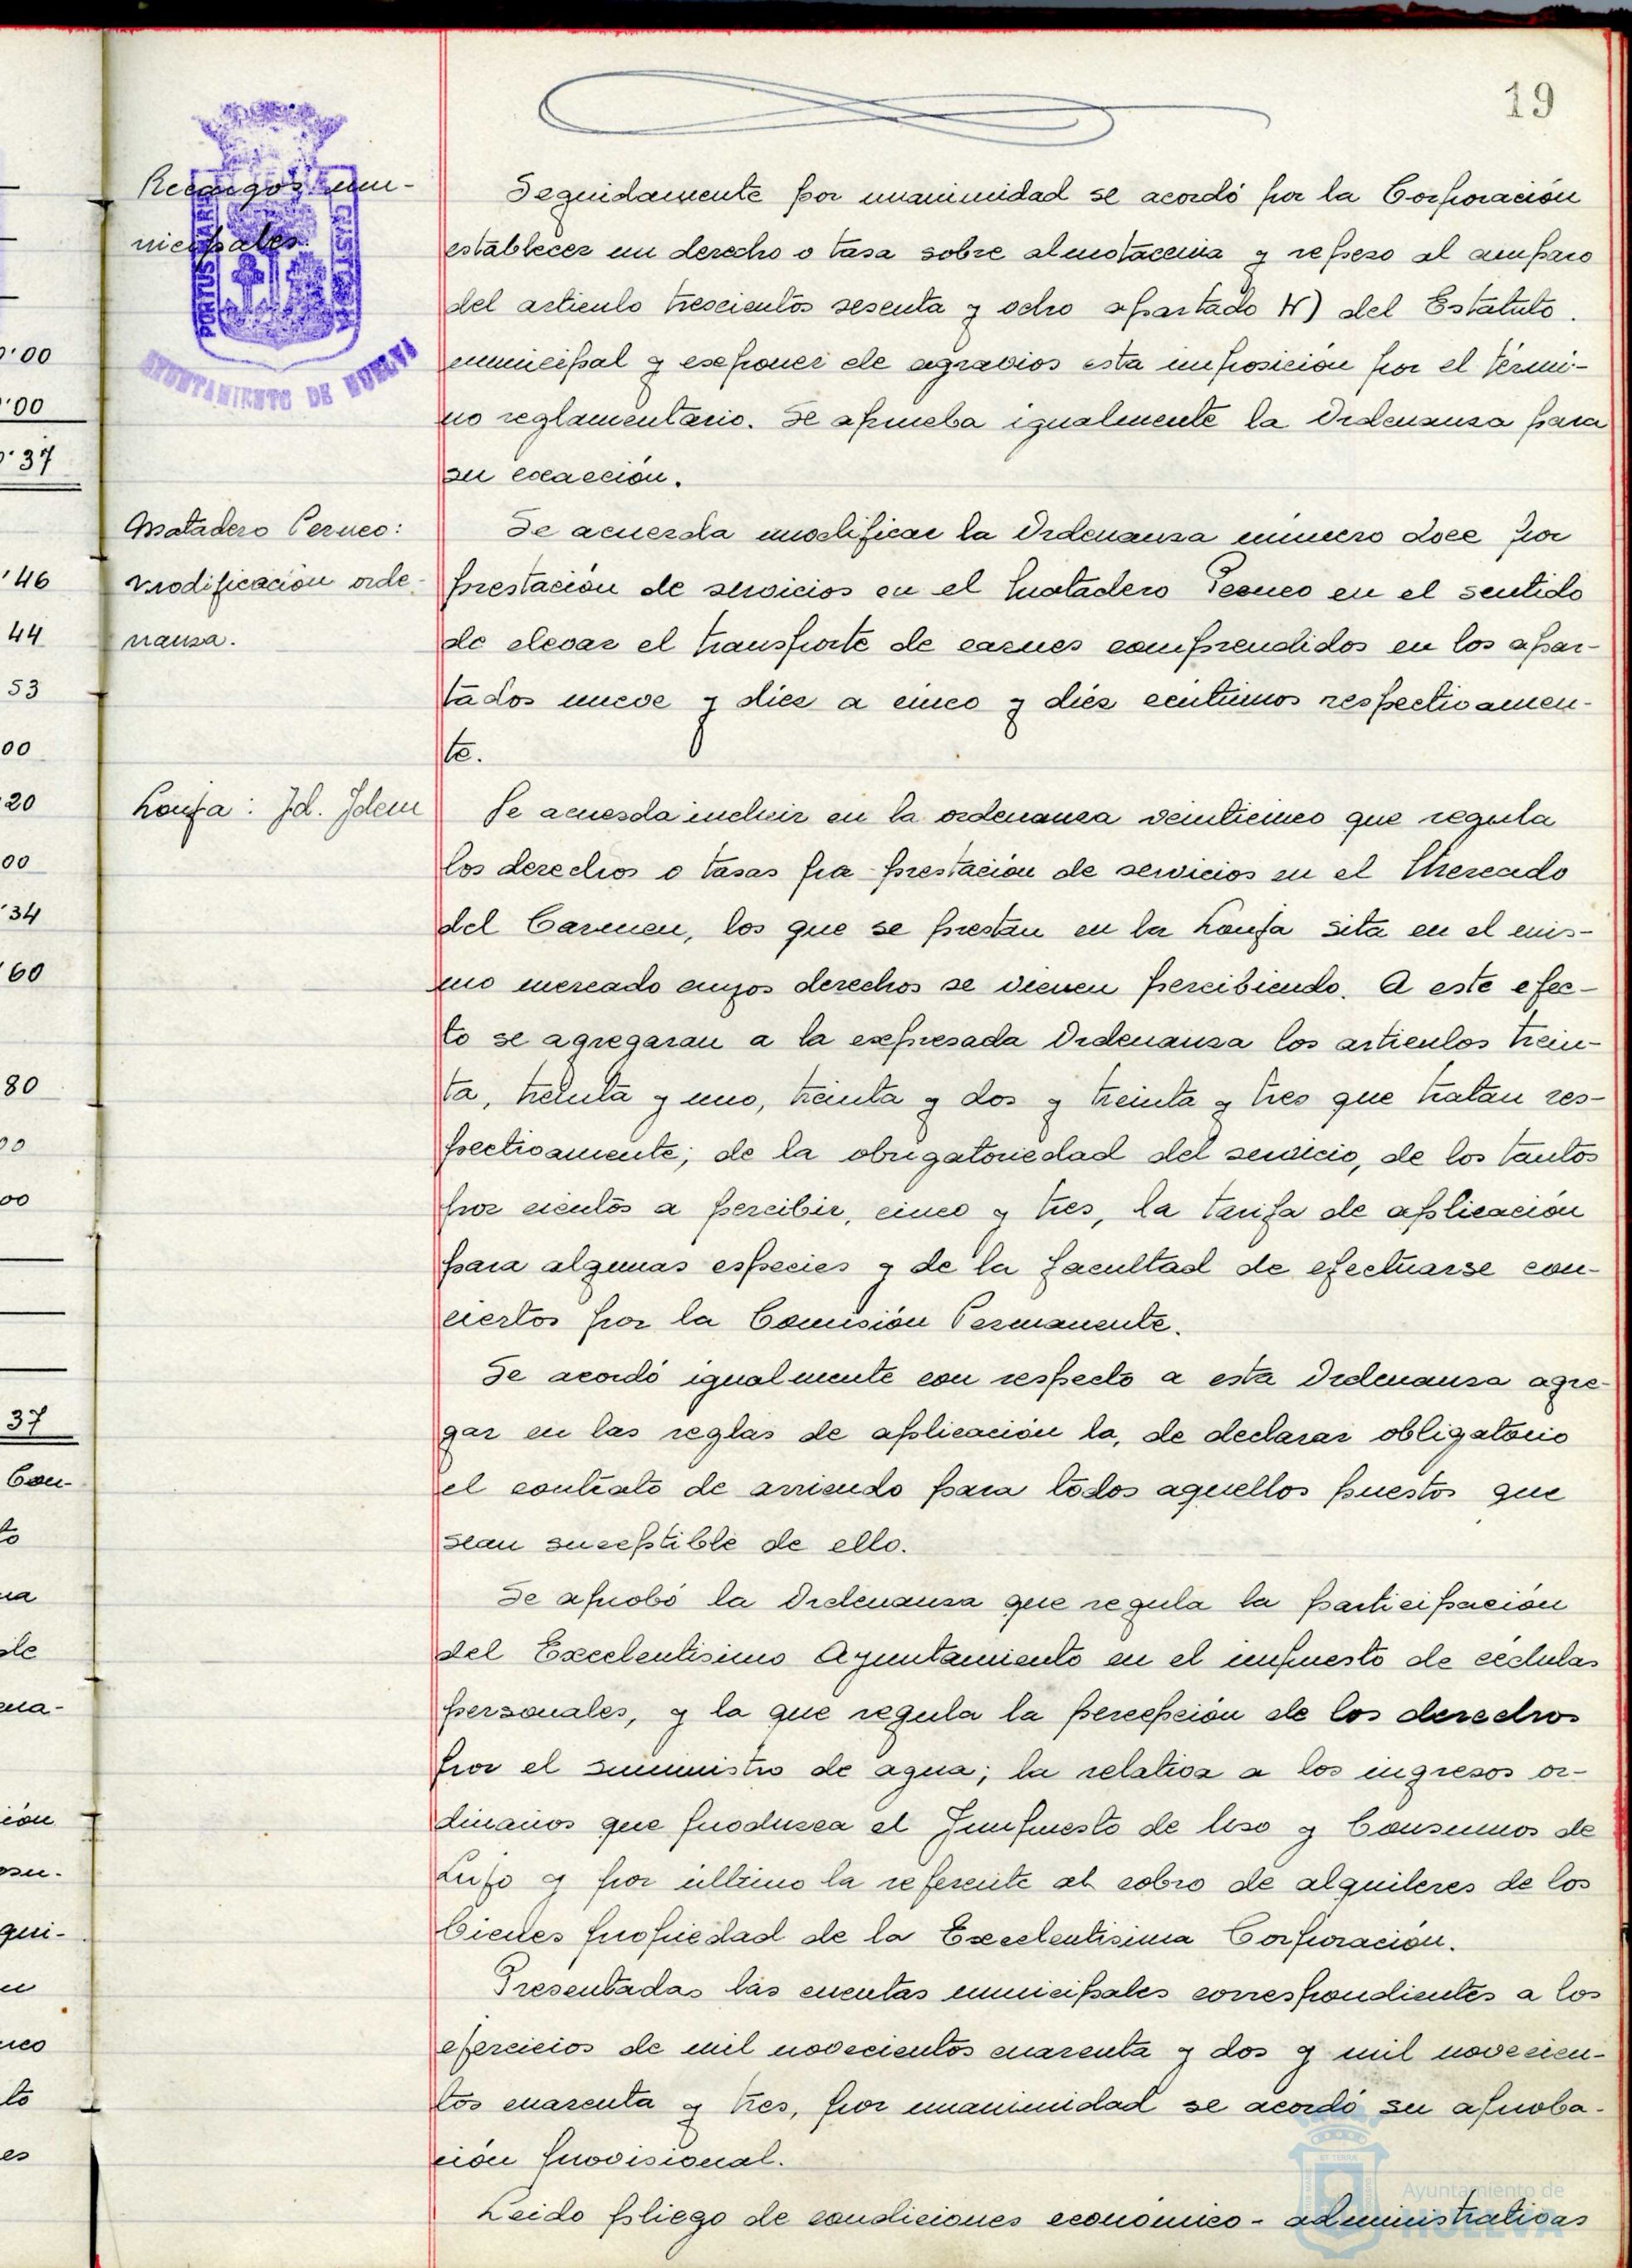 19
Recargos mu-
nicipales.
PORTUS MARIS ET TERRAE CUSTODIA
AYUNTAMIENTO DE HUELVA
Seguidamente por unanimidad se acordó por la Corporación
establecer un derecho o tasa sobre almotacenia y repeso al amparo
del articulo trescientos sesenta y ocho apartado H) del Estatuto
municipal y exponer de agravios esta imposición por el térmi-
no reglamentario. Se aprueba igualmente la Ordenanza para
su exacción.
Matadero Perneo:
modificación orde-
nanza.
Se acuerda modificar la Ordenanza número doce por
prestación de servicios en el Matadero Perneo en el sentido
de elevar el transporte de carnes comprendidos en los apar-
tados nueve y diez a cinco y diéz centimos respectivamen-
te.
Lonja: Id. Idem
Se acuerda incluir en la ordenanza veinticinco que regula
los derechos o tasas pra prestación de servicios en el Mercado
del Carmen, los que se prestan en la Lonja sita en el mis-
mo mercado cuyos derechos se vienen percibiendo. A este efec-
to se agregaran a la expresada Ordenanza los articulos trein-
ta, treinta y uno, treinta y dos y treinta y tres que tratan res-
pectivamente; de la obrigatoriedad del servicio, de los tantos
por cientos a percibir, cinco y tres, la tarifa de aplicación
para algunas especies y de la facultad de efectuarse con-
ciertos por la Comisión Permanente.
Se acordó igualmente con respecto a esta Ordenanza agre-
gar en las reglas de aplicación la, de declarar obligatorio
el contrato de arriendo para todos aquellos puestos que
sean suceptible de ello.
Se aprobó la Ordenanza que regula la participación
del Excelentisimo Ayuntamiento en el impuesto de cédulas
personales, y la que regula la percepción de los derechos
por el suministro de agua; la relativa a los ingresos or-
dinarios que produzca el Impuesto de Uso y Consumos de
Lujo y por último la referente al cobro de alquileres de los
bienes propiedad de la Excelentisima Corporación.
Presentadas las cuentas municipales correspondientes a los
ejercicios de mil novecientos cuarenta y dos y mil novecien-
tos cuarenta y tres, por unanimidad se acordó su aproba-
ción provisional.
Leido pliego de condiciones económico-administrativas
Ayuntamiento de
HUELVA